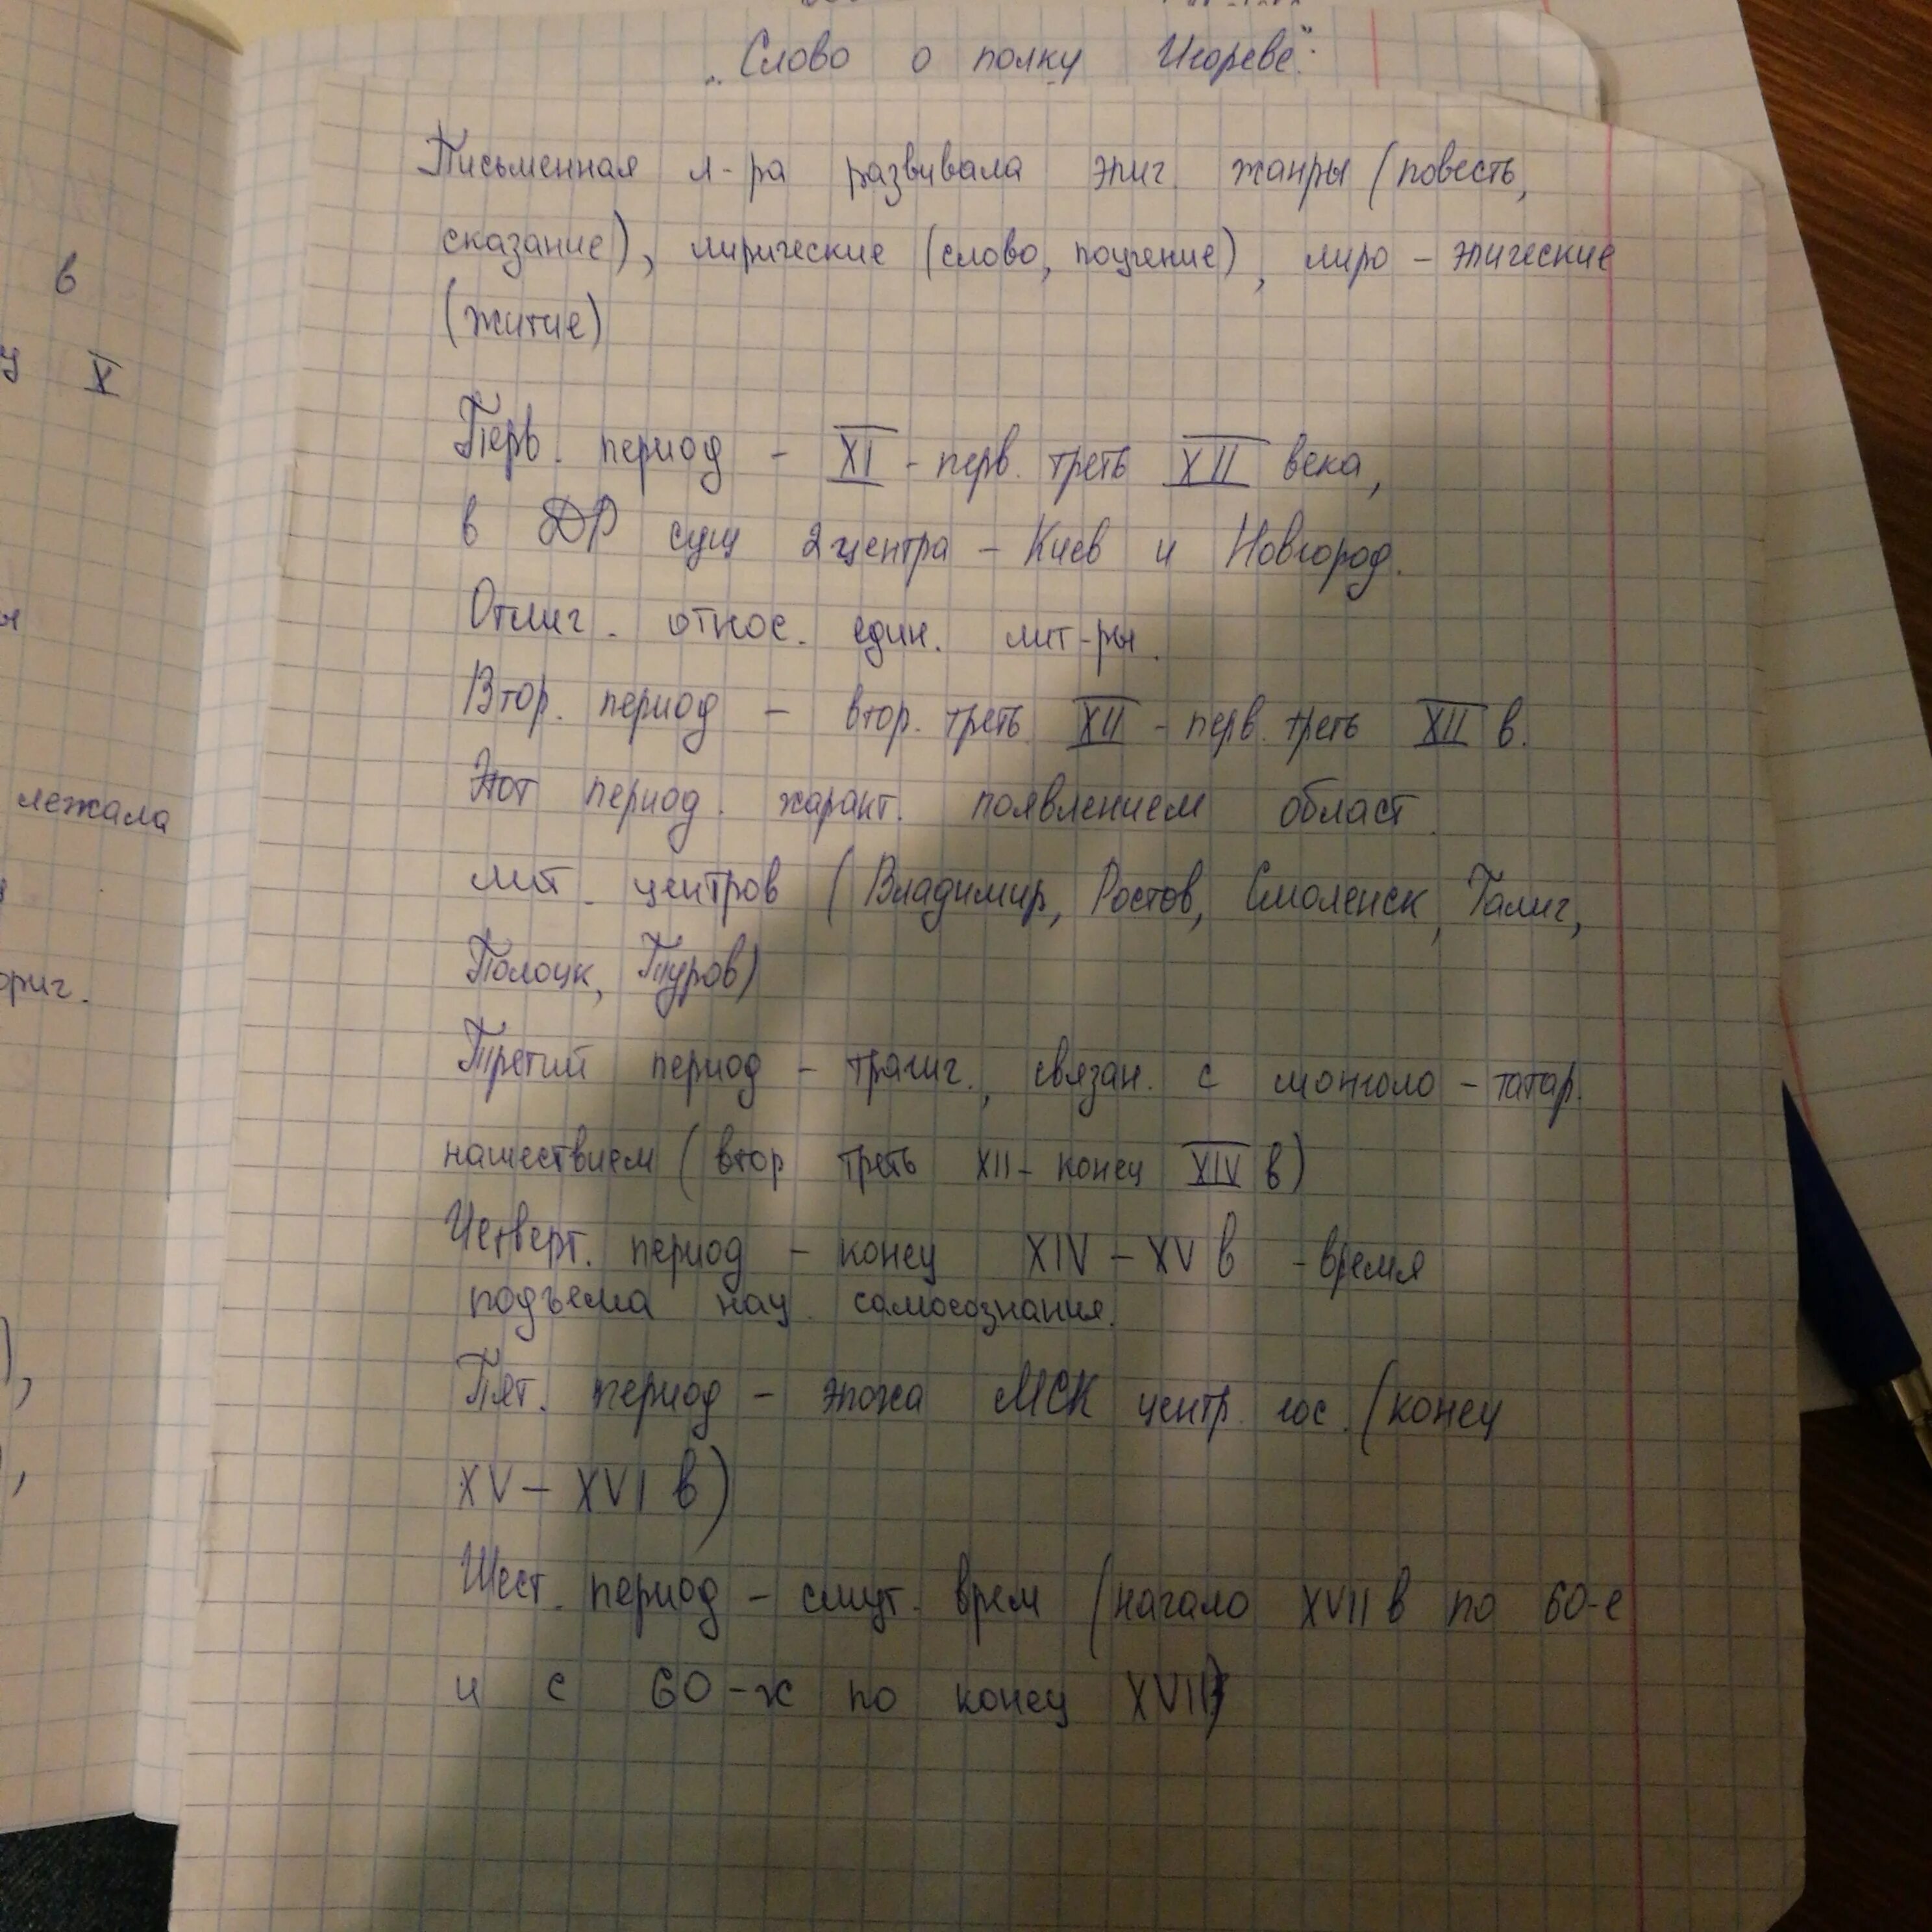 „Слово о полку Игореве".
Письменная л-ра развивала эпич. жанры (повесть,
сказание), лирические (слово, поучение), лиро - эпические
(житие)
Перв. период - XI - перв. треть XII века,
в ДР сущ 2 центра - Киев и Новгород.
Отлич. относ. един. лит-ры.
Втор. период - втор. треть XII - перв. треть XII в.
Этот период. характ. появлением област.
лит. центров (Владимир, Ростов, Смоленск, Галич,
Полоцк, Туров)
Третий период - трагич., связан. с монголо - татар.
нашествием (втор треть XII - конец XIV в)
Четверт. период - конец XIV - XV в - время
подъема нац. самосознания.
Пят. период - эпоха МСК центр. гос. (конец
XV - XVI в)
Шест. период - смут. врем (начало XVII в по 60-е
и с 60-х по конец XVII)
в
X
лежала
ориг.